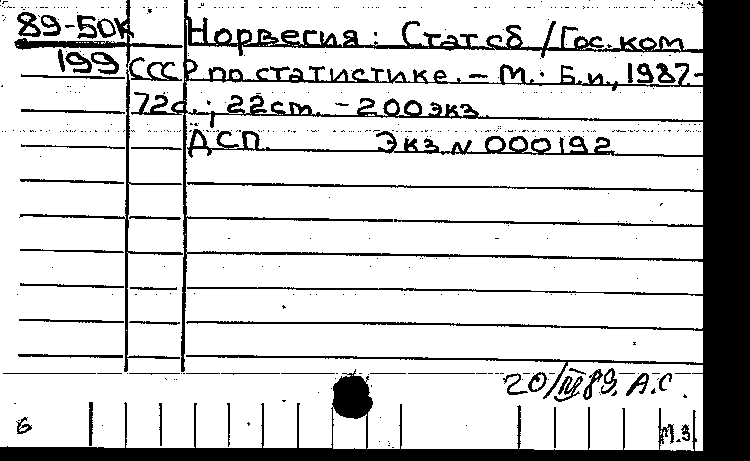 89-50К Норвегия : Стат сб / Гос. ком
199 СССР по статистике. – М.: Б.и., 1987-
72с. ; 22ст. - 200экз
ДСП. Экз. N 000192
20/IV 89. А.С.
6 М.З.